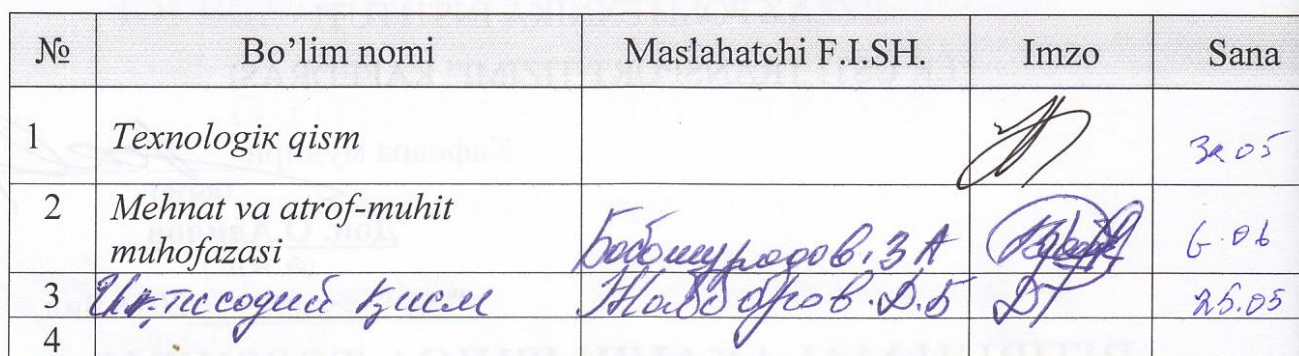 № Bo’lim nomi Maslahatchi F.I.SH. Imzo Sana
1 Texnologiк qism
2 Mehnat va atrof-muhit
muhofazasi Бобомуродов. З А 6.06
3 Иқтисодий қисм Жабборов. Д.Б 25.05
4